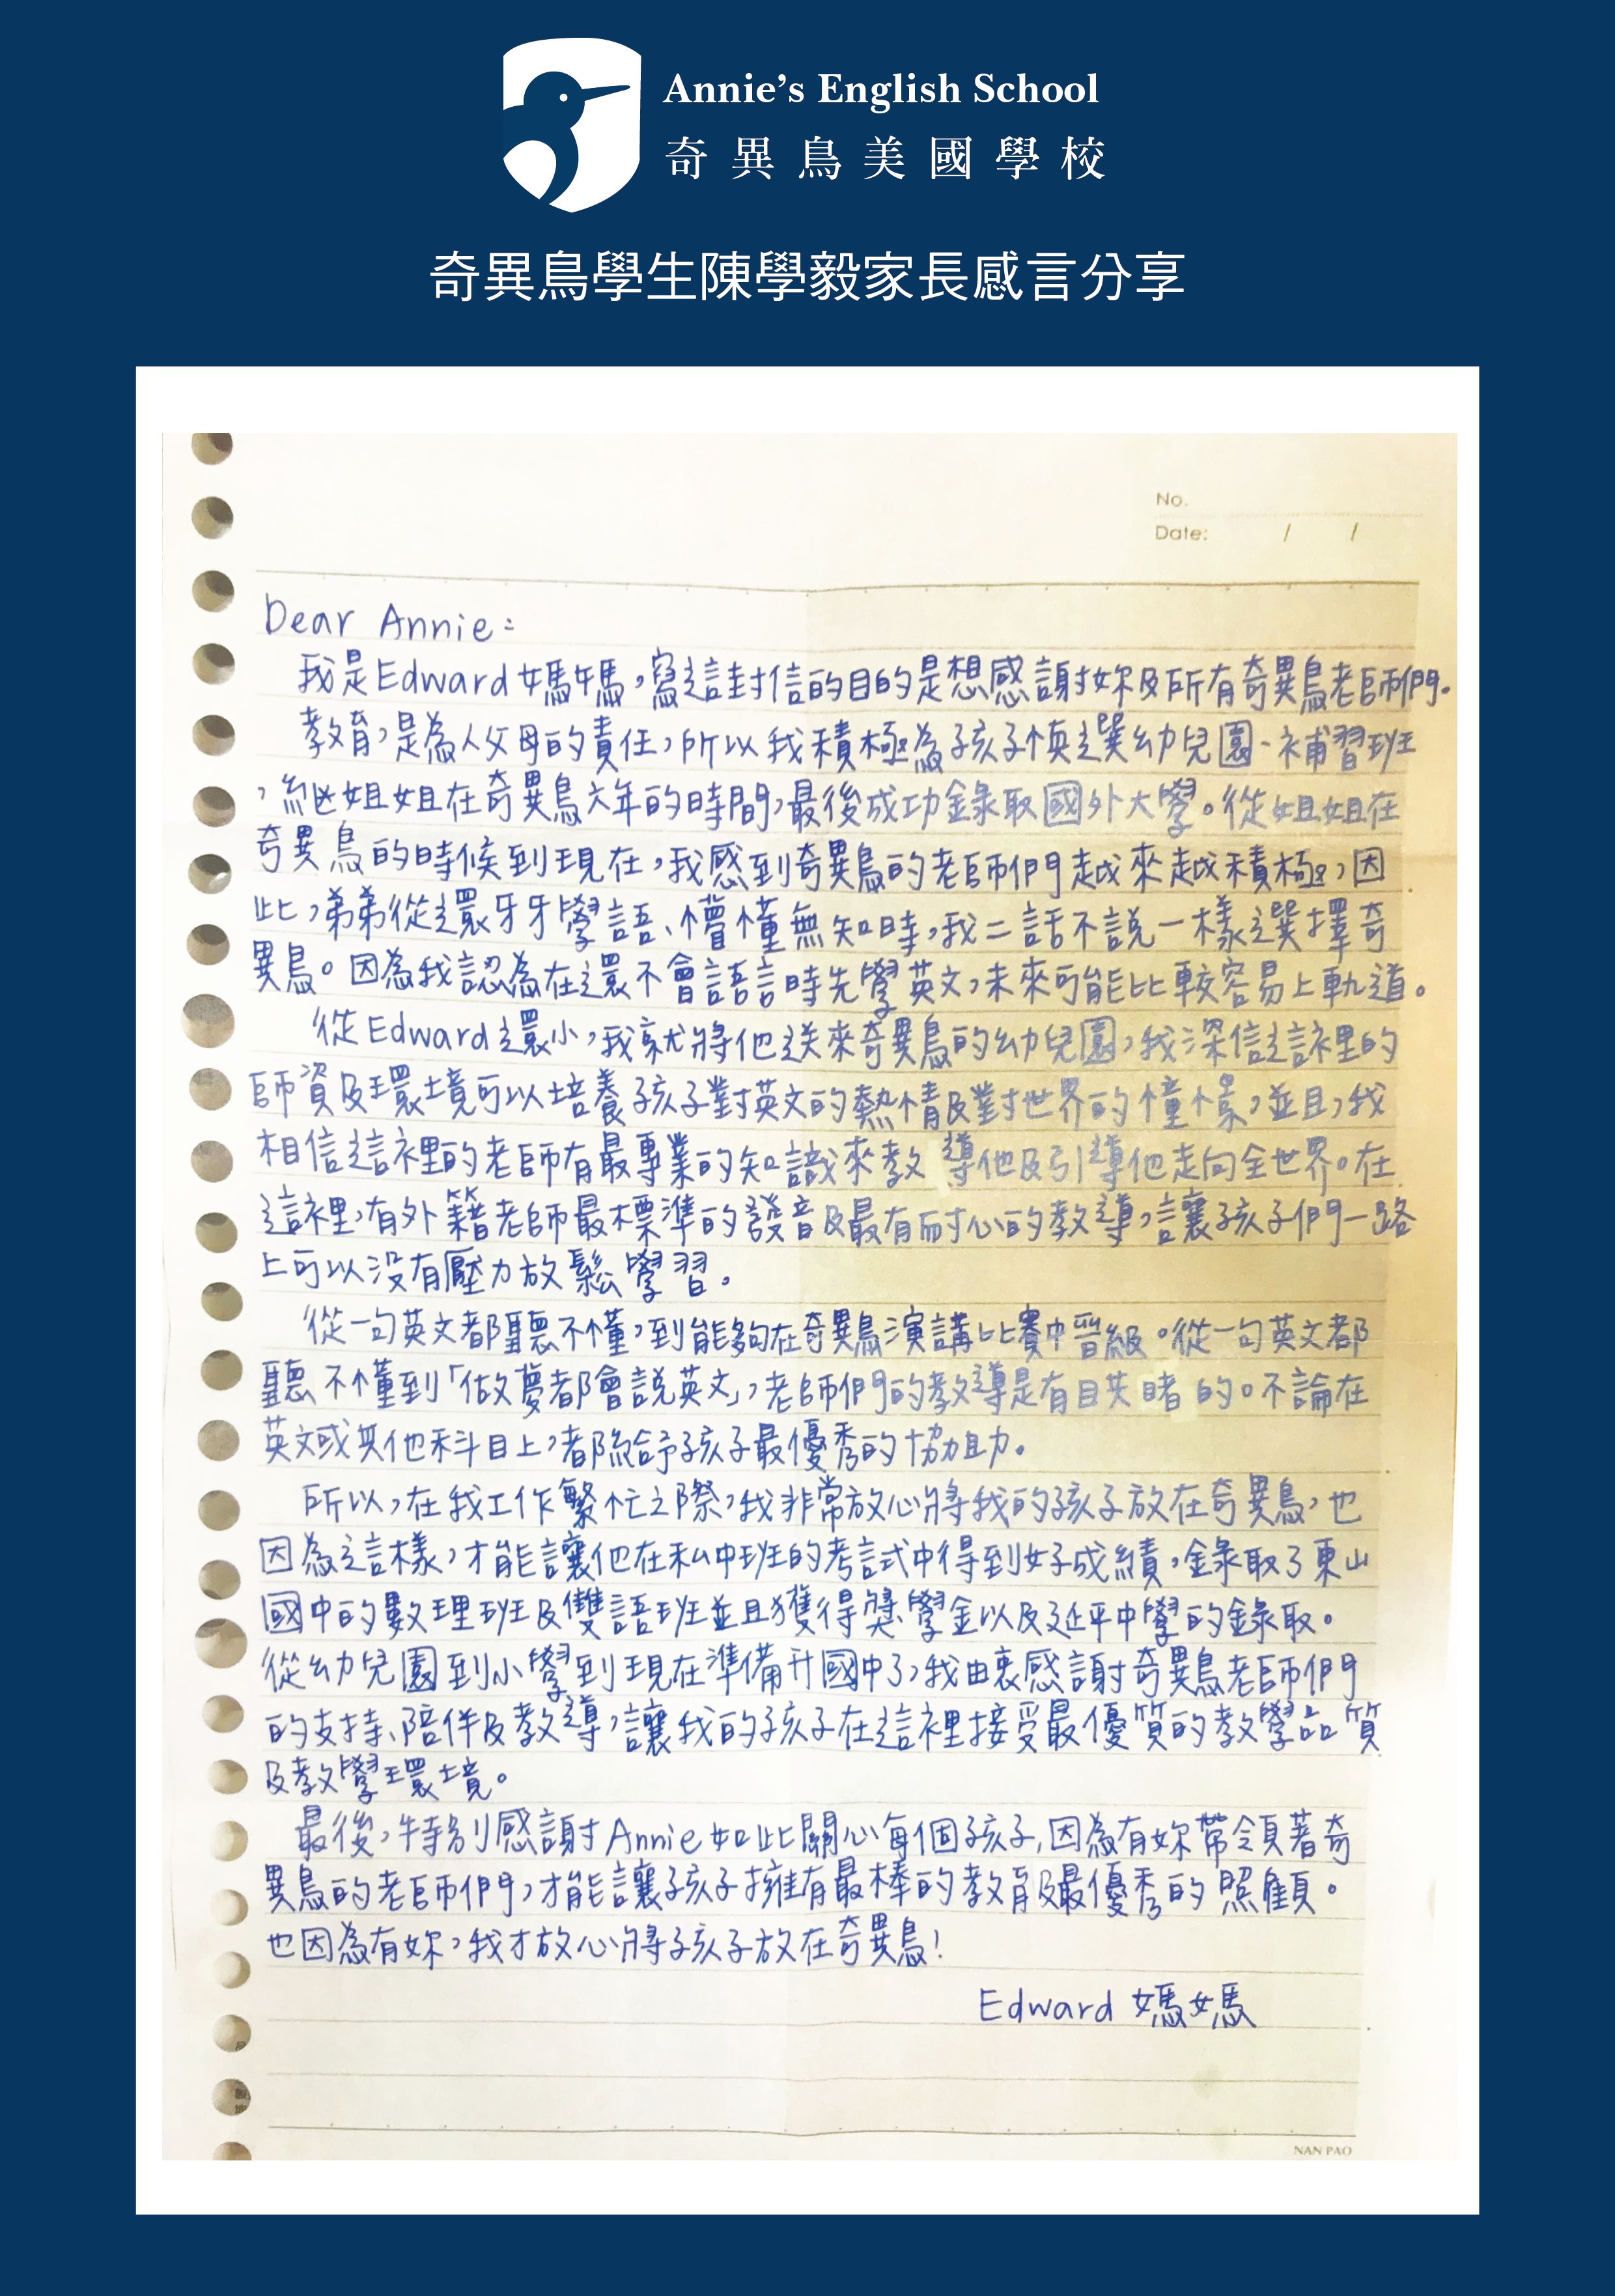 Annie's English School
奇異鳥美國學校
奇異鳥學生陳學毅家長感言分享
No.
Date: / /
Dear Annie:
我是Edward媽媽，寫這封信的目的是想感謝妳及所有奇異鳥老師們。
教育，是為人父母的責任，所以我積極為孩子慎選幼兒園、補習班
，繼姐姐在奇異鳥六年的時間，最後成功錄取國外大學。從姐姐在
奇異鳥的時候到現在，我感到奇異鳥的老師們越來越積極，因
此，弟弟從還牙牙學語、懵懂無知時，我二話不說一樣選擇奇
異鳥。因為我認為在還不會語言時先學英文，未來可能比較容易上軌道。
從Edward還小，我就將他送來奇異鳥的幼兒園，我深信這裡的
師資及環境可以培養孩子對英文的熱情及對世界的憧憬，並且，我
相信這裡的老師有最專業的知識來教導他及引導他走向全世界。在
這裡，有外籍老師最標準的發音及最有耐心的教導，讓孩子們一路
上可以沒有壓力放鬆學習。
從一句英文都聽不懂，到能夠在奇異鳥演講比賽中晉級。從一句英文都
聽不懂到「做夢都會說英文」，老師們的教導是有目共睹的。不論在
英文或其他科目上，都給予孩子最優秀的協助。
所以，在我工作繁忙之際，我非常放心將我的孩子放在奇異鳥，也
因為這樣，才能讓他在私中班的考試中得到好成績，錄取了東山
國中的數理班及雙語班並且獲得獎學金以及延平中學的錄取。
從幼兒園到小學到現在準備升國中了，我由衷感謝奇異鳥老師們
的支持、陪伴及教導，讓我的孩子在這裡接受最優質的教學品質
及教學環境。
最後，特別感謝Annie如此關心每個孩子，因為有妳帶領著奇
異鳥的老師們，才能讓孩子擁有最棒的教育及最優秀的照顧。
也因為有妳，我才放心將孩子放在奇異鳥！
Edward 媽媽
NAN PAO